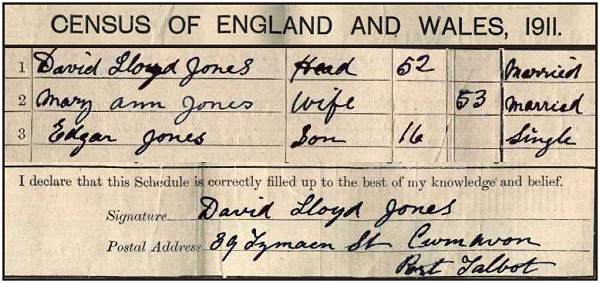 CENSUS OF ENGLAND AND WALES, 1911.
1 David Lloyd Jones Head 52 Married
2 Mary Ann Jones Wife 53 Married
3 Edgar Jones Son 16 Single
I declare that this Schedule is correctly filled up to the best of my knowledge and belief.
Signature David Lloyd Jones
Postal Address 39 Tymaen St Cwmavon
Port Talbot